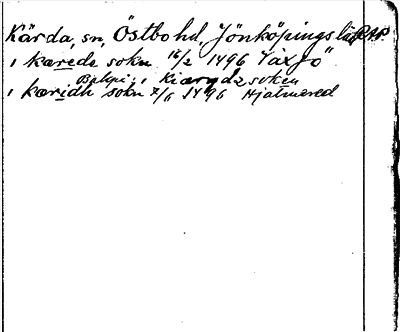 Kärda, sn, Östbo hd, Jönköpings län
i kærede sokn 16/2 1496 Växjö
i Kiærydz soken
i kæridh sokn 7/6 1496 Hjälmered